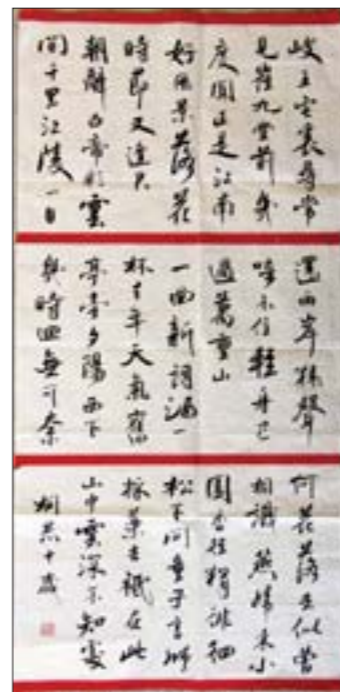 岐王宅裏尋常
見崔九堂前幾
度聞正是江南
好風景落花
時節又逢君
朝辭白帝彩雲
間千里江陵一日
還兩岸猿聲
啼不住輕舟已
過萬重山
一曲新詞酒一
杯去年天氣舊
亭臺夕陽西下
幾時回無可奈
何花落去似曾
相識燕歸來小
園香徑獨徘徊
松下問童子言師
採藥去祇在此
山中雲深不知處
十歲